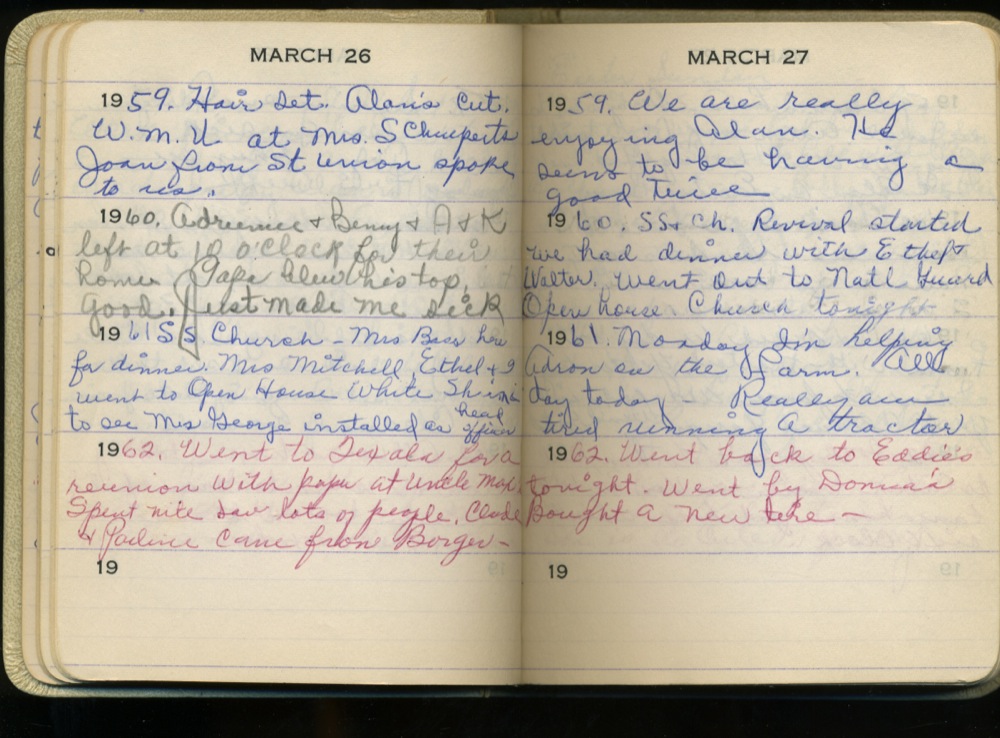 MARCH 26
1959. Hair set. Alan's cut.
W.M.U. at Mrs. Schueperts
Joan from St Union spoke
to us.
1960. Adreenne & Benny & A & K
left at 10 o'clock for their
home Papa blew his top.
Good. Just made me sick
1961 SS. Church - Mrs Bass here
for dinner. Mrs Mitchell, Ethel & I
went to Open House White Shrine
to see Mrs George installed as head officer
1962. Went to Texola for a
reunion with papa at Uncle
Spent nite saw lots of people. Clyde
& Pauline came from Borger -
19
MARCH 27
1959. We are really
enjoying Alan. He
seems to be having a
good time
1960. SS & Ch. Revival started
we had dinner with Ethel &
Walter. Went out to Natl Guard
Open house Church tonight
1961. Monday I'm helping
Adron on the farm. All
day today Really am
tired running a tractor
1962. Went back to Eddie's
tonight. Went by Donna's
Bought a new tire -
19